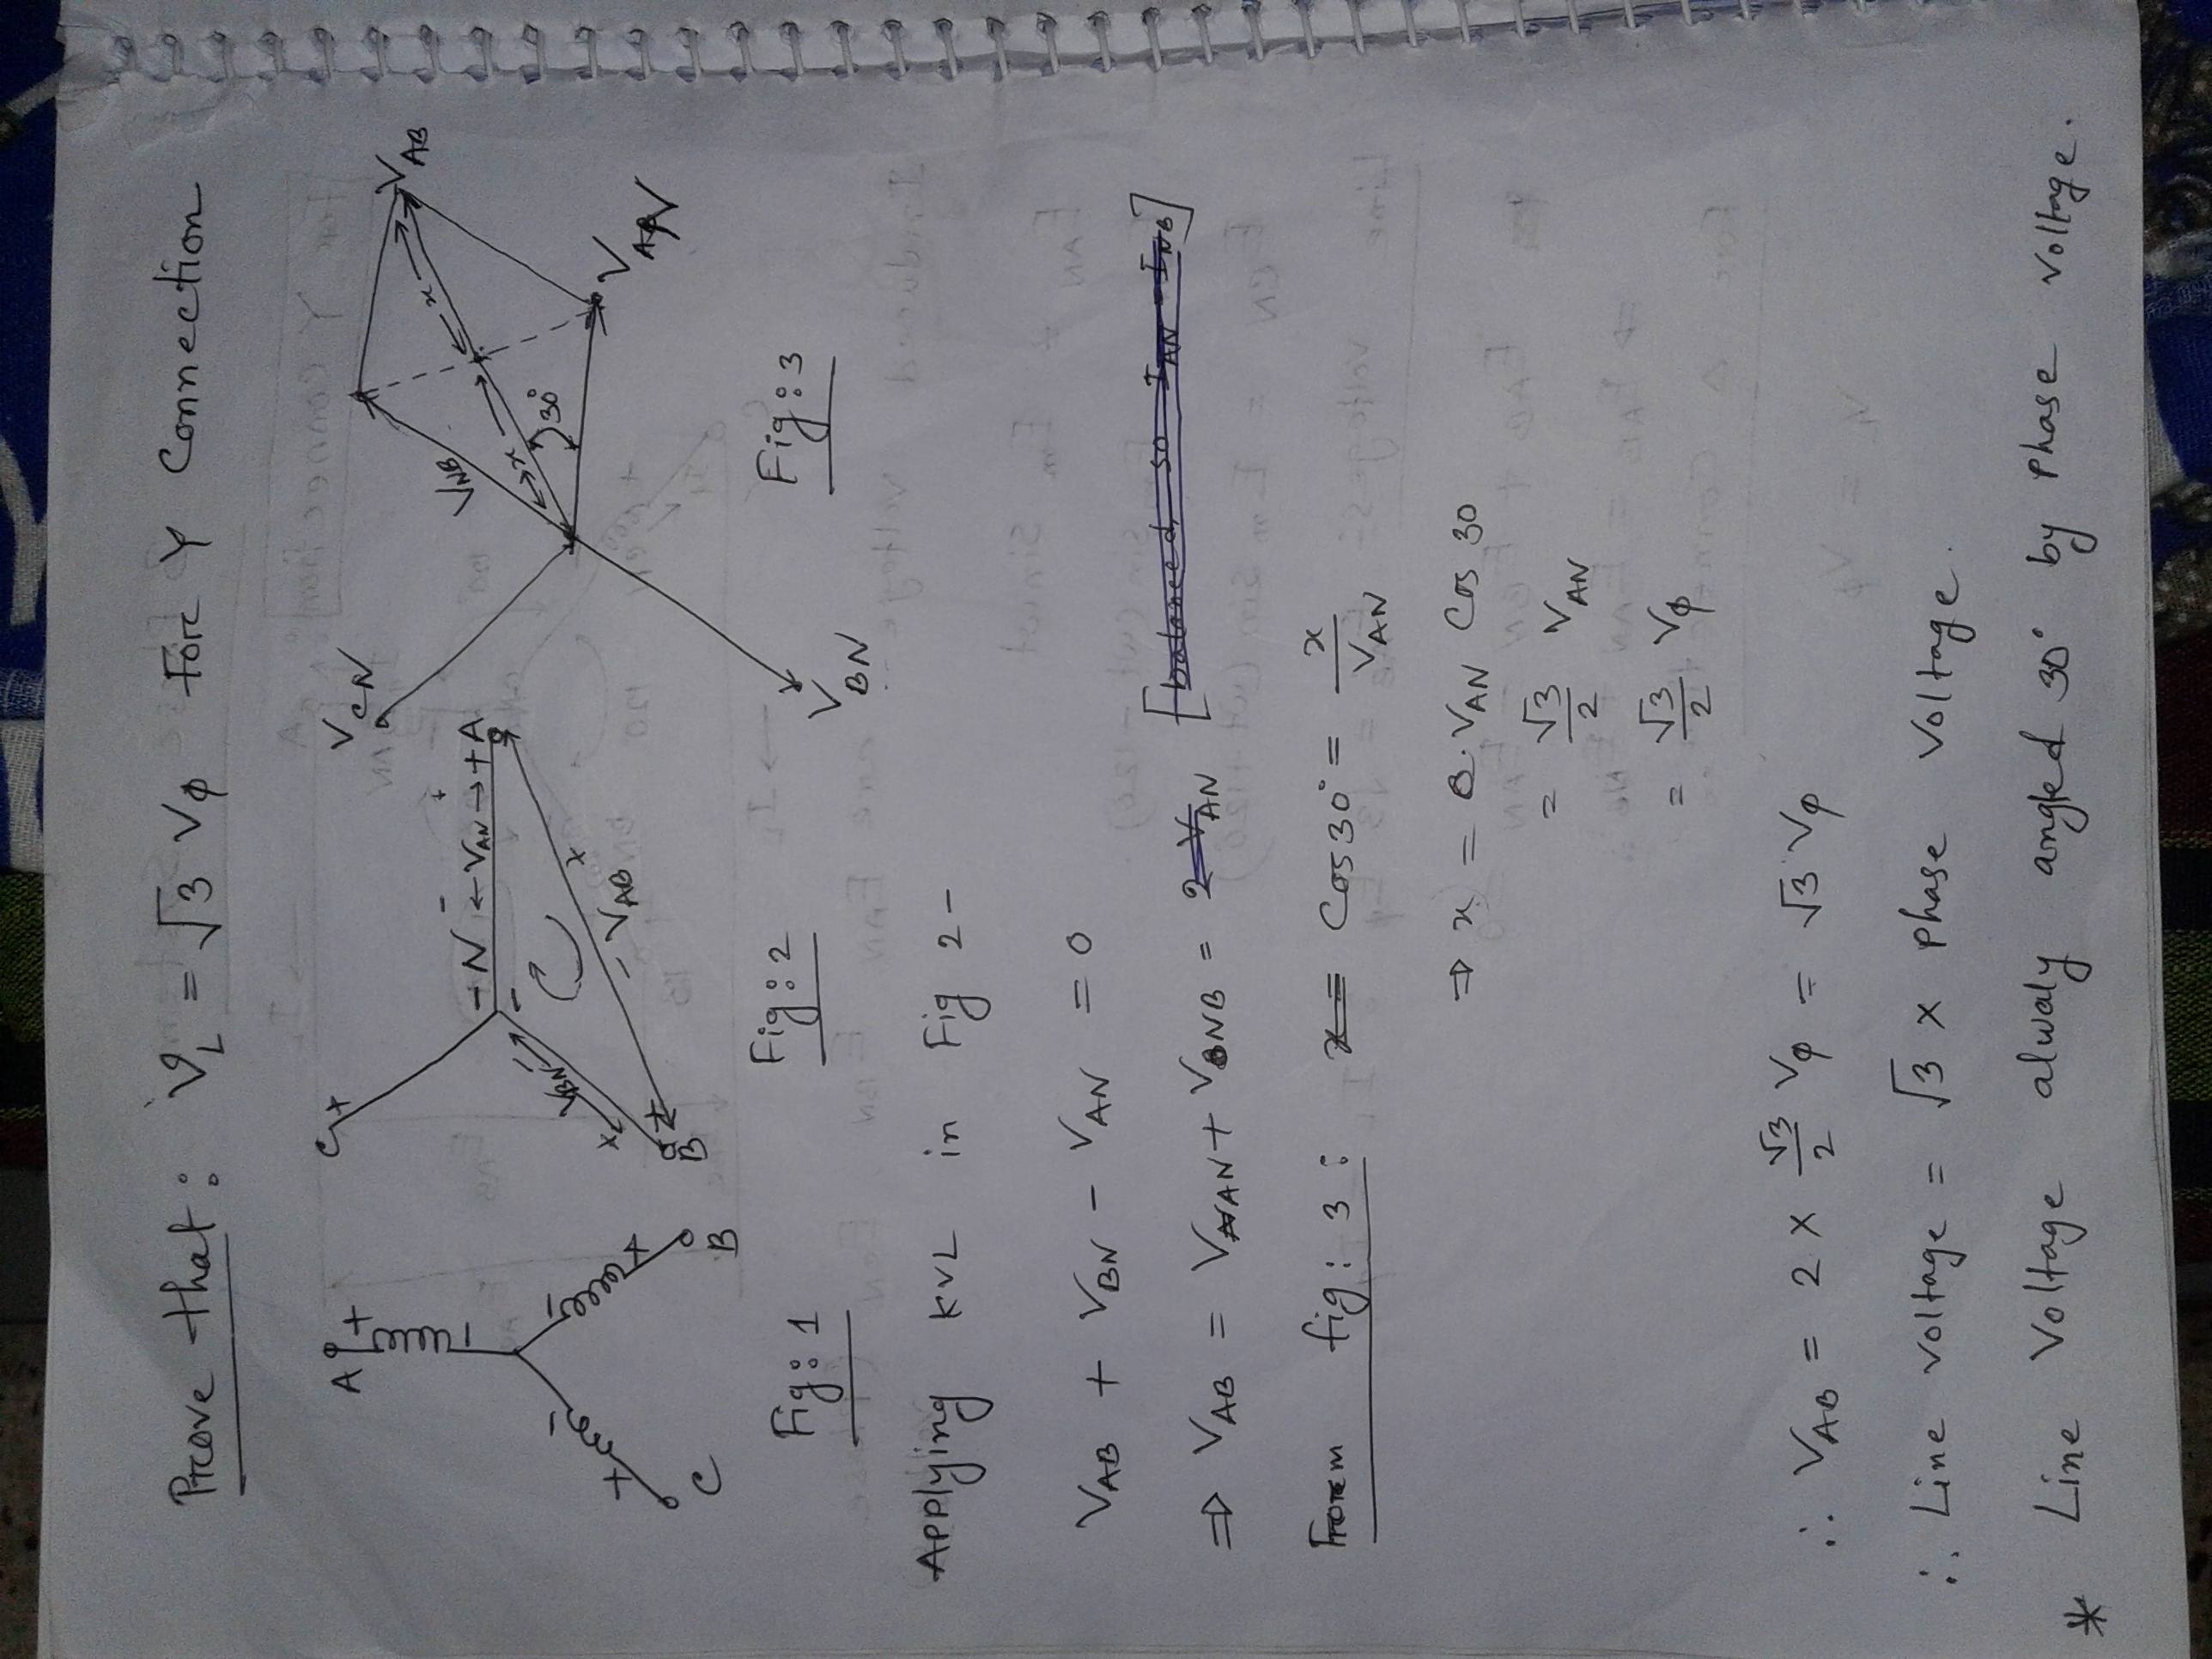 Prove that: V_L = √3 Vφ For Y Connection
A + C + V_CN V_AB
- N - ← V_AN → + + A V_NB x
V_BN x 30°
- V_AB + V_AN
C B B V_BN
Fig: 1 Fig: 2 Fig: 3
Applying KVL in Fig 2 -
V_AB + V_BN - V_AN = 0
⇒ V_AB = V_AN + V_NB = 2 V_AN [balanced, so I_AN = I_NB]
From fig: 3: x = Cos 30° = x / V_AN
⇒ x = V_AN Cos 30
= √3/2 V_AN
= √3/2 Vφ
∴ V_AB = 2 × √3/2 Vφ = √3 Vφ
∴ Line voltage = √3 × phase Voltage.
* Line Voltage alwaly angled 30° by phase voltage.